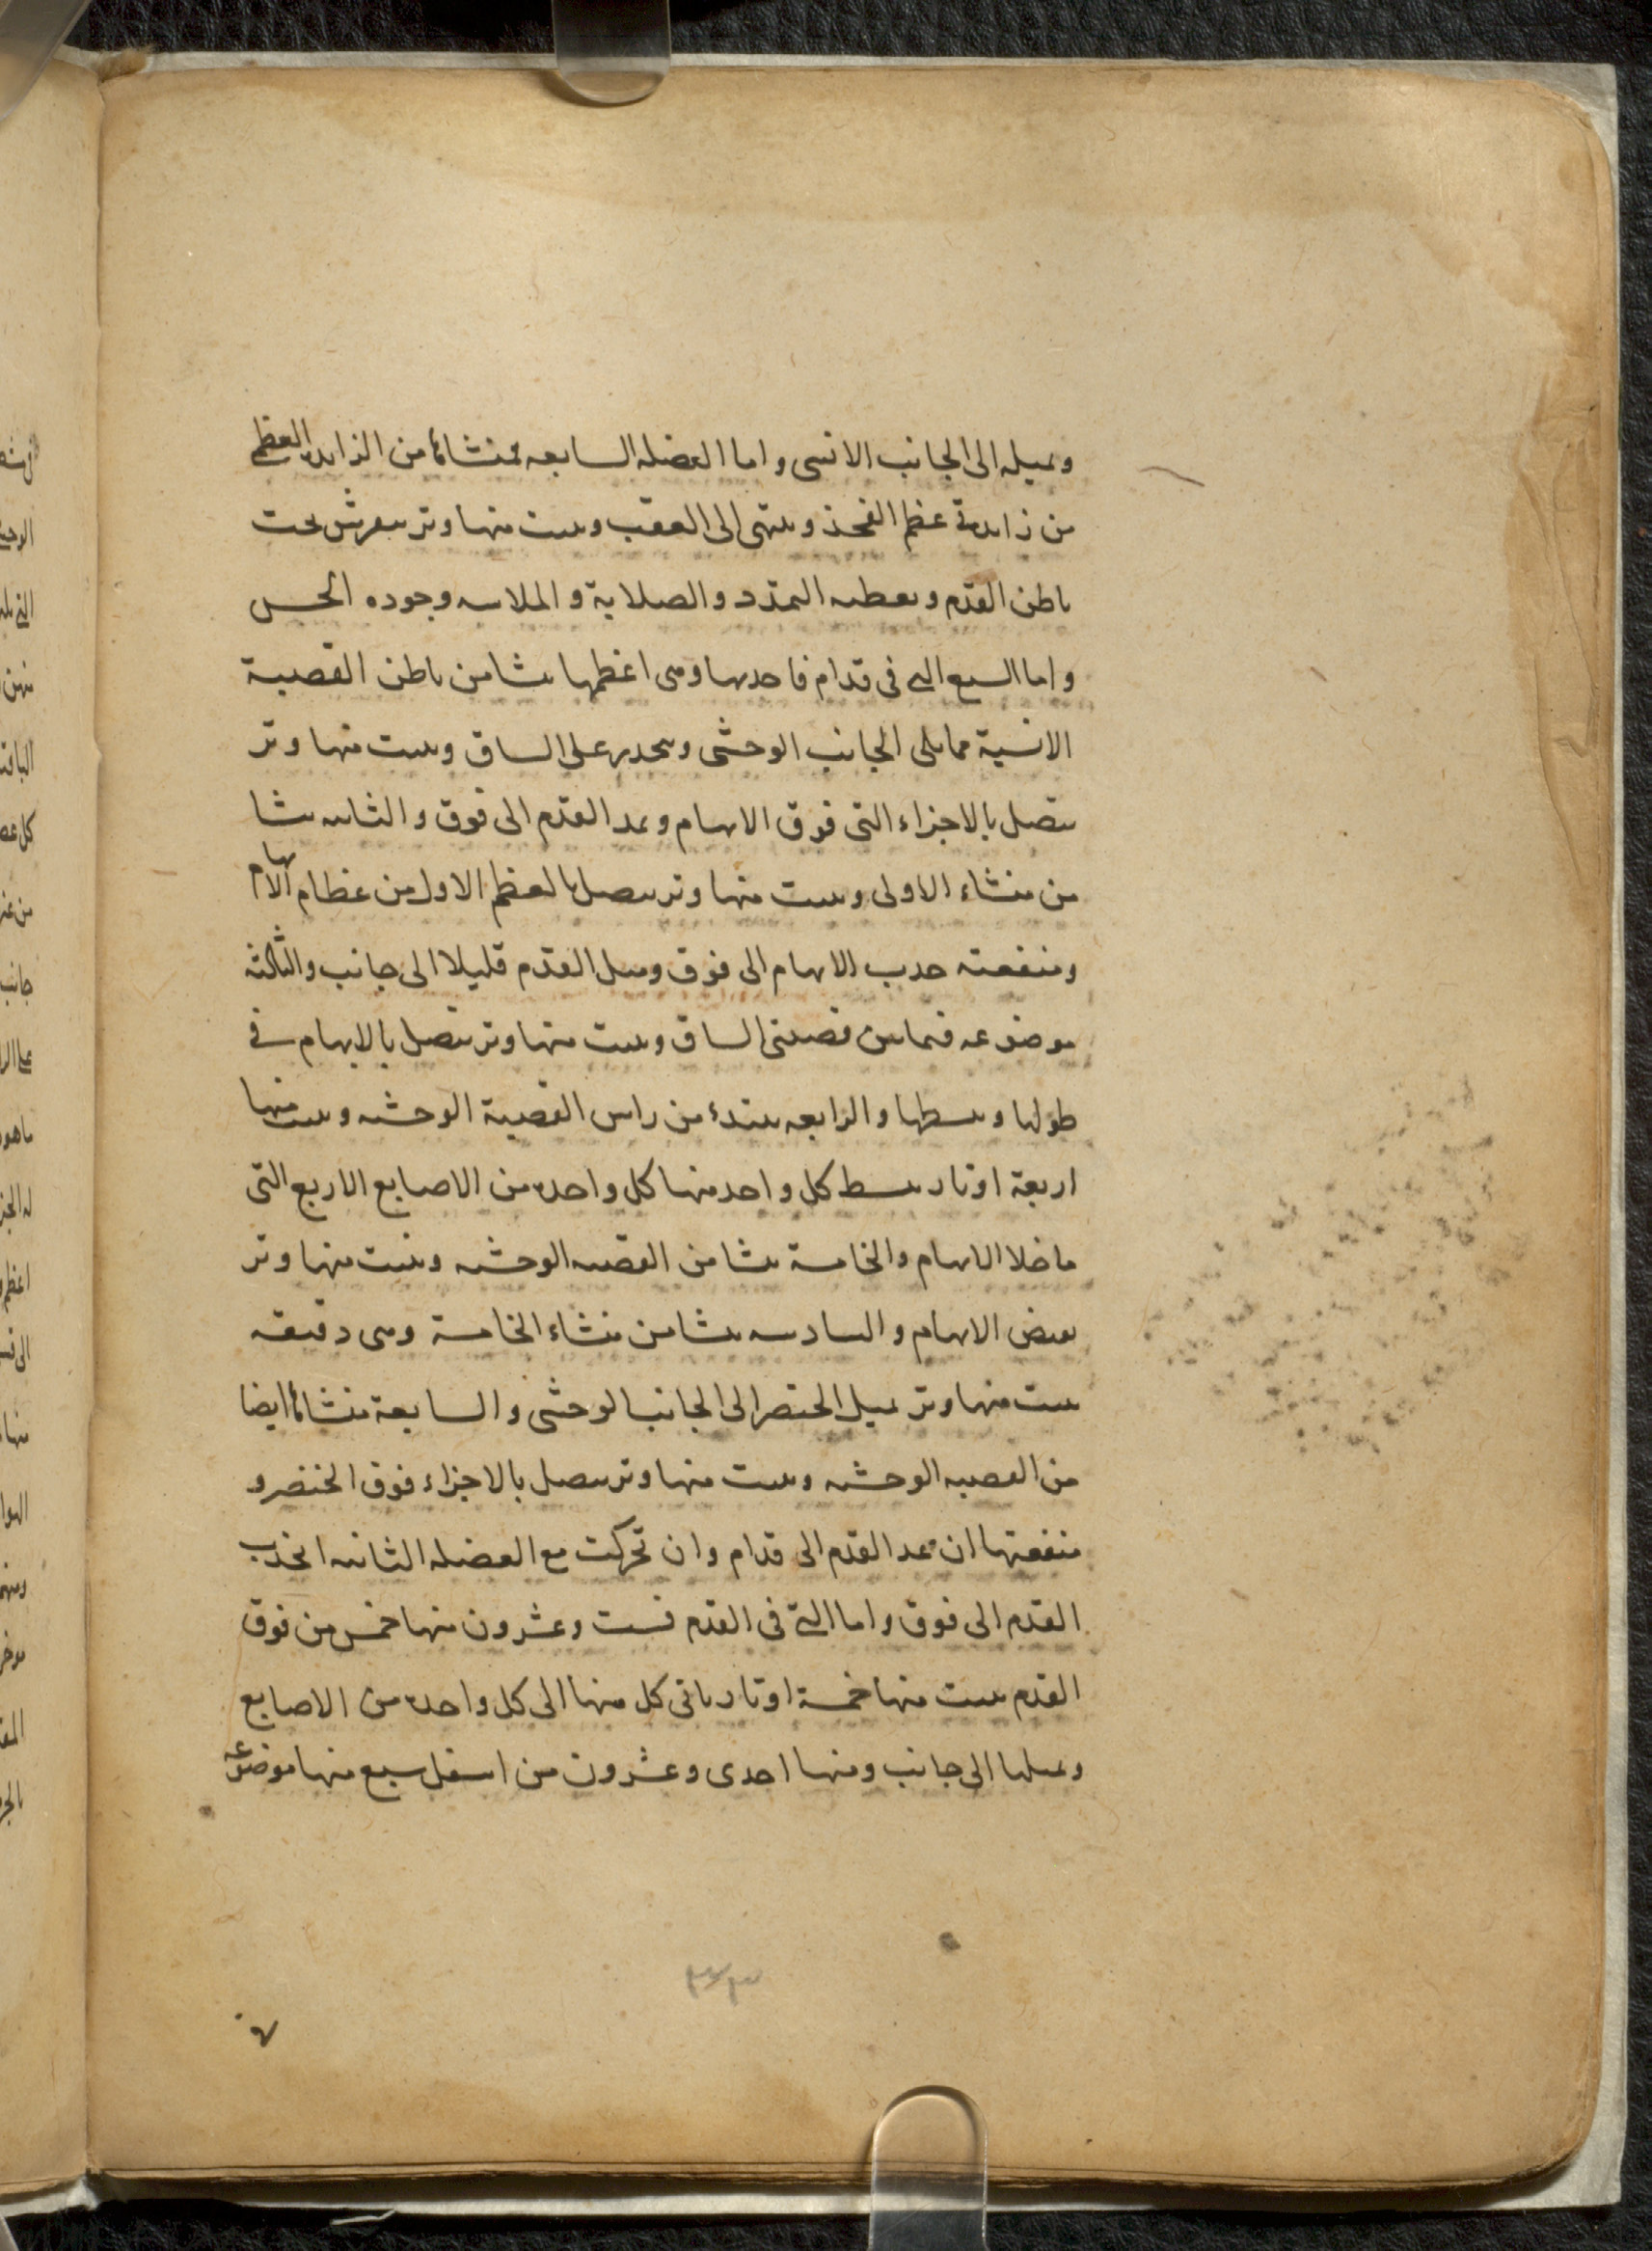 ويميله الى الجانب الانسى واما العضله السابعه فمنشائها من الزايده العظمى
من زايدتى عظم الفخذ وينتهى الى العقب وينبت منها وتر يتفرش تحت
باطن القدم ويعطيه التمدد والصلابة والملاسه وجوده الحس
واما السبع التى فى قدام فاحديها وهى اعظمها ينشا من باطن القصبة
الانسية مما يلى الجانب الوحشى وينحدر على الساق وينبت منها وتر
يتصل بالاجزاء التى فوق الابهام ويمد القدم الى فوق والثانيه ينشا
من منشاء الاولى وينبت منها وتر يتصل بالعظم الاول من عظام الابهام
ومنفعته جذب الابهام الى فوق وميل القدم قليلا الى جانب والثالثه
موضوعه فيما بين قصبتى الساق وينبت منها وتر يتصل بالابهام فى
طولها ويبسطها والرابعه يبتدء من راس القصبة الوحشيه وينبت منها
اربعة اوتار يبسط كل واحد منها كل واحده من الاصابع الاربع التى
ما خلا الابهام والخامسة ينشا من القصبه الوحشيه وينبت منها وتر
يقبض الابهام والسادسه ينشا من منشاء الخامسة وهى دقيقه
ينبت منها وتر يميل الخنصر الى الجانب الوحشى والسابعة منشائها ايضا
من القصبه الوحشيه وينبت منها وتر يتصل بالاجزاء فوق الخنصر و
منفعتها ان يمد القدم الى قدام وان تحركت مع العضله الثانيه انجذب
القدم الى فوق واما التى فى القدم فست وعشرون منها خمس من فوق
القدم ينبت منها خمسة اوتار ياتى كل منها الى كل واحده من الاصابع
ويميلها الى جانب ومنها احدى وعشرون من اسفل سبع منها موضوعه